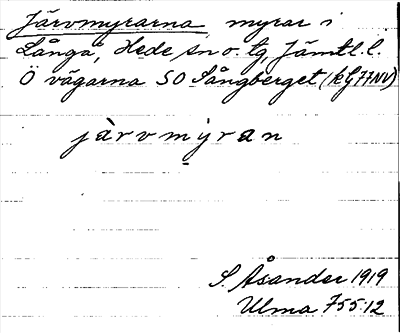 Järvmyrarna myrar i
Långå, Hede sn o. tg, Jämtl. l.
Ö vägarna SO Sångberget (kG 77NV)
järvmyran
S. Åsander 1919
Ulma 755:12